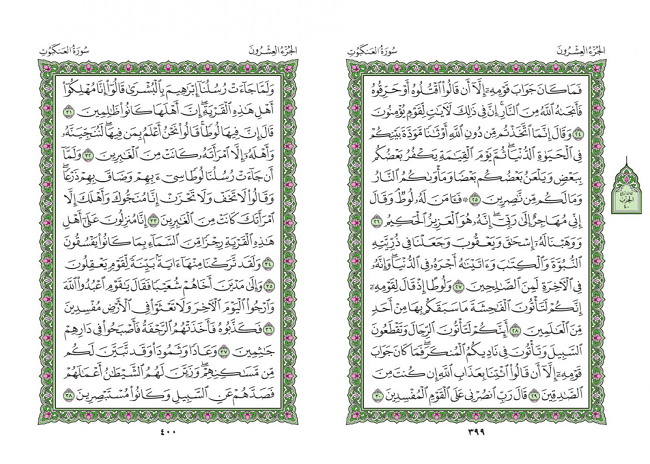 الجزء العشرون
سورة العنكبوت
فَمَا كَانَ جَوَابَ قَوْمِهِۦٓ إِلَّآ أَن قَالُوا۟ ٱقْتُلُوهُ أَوْ حَرِّقُوهُ
فَأَنجَىٰهُ ٱللَّهُ مِنَ ٱلنَّارِ ۚ إِنَّ فِى ذَٰلِكَ لَـَٔايَـٰتٍ لِّقَوْمٍ يُؤْمِنُونَ
٢٤ وَقَالَ إِنَّمَا ٱتَّخَذْتُم مِّن دُونِ ٱللَّهِ أَوْثَـٰنًا مَّوَدَّةَ بَيْنِكُمْ
فِى ٱلْحَيَوٰةِ ٱلدُّنْيَا ۖ ثُمَّ يَوْمَ ٱلْقِيَـٰمَةِ يَكْفُرُ بَعْضُكُم
بِبَعْضٍ وَيَلْعَنُ بَعْضُكُم بَعْضًا وَمَأْوَىٰكُمُ ٱلنَّارُ
وَمَا لَكُم مِّن نَّـٰصِرِينَ ٢٥ ۞ فَـَٔامَنَ لَهُۥ لُوطٌ ۘ وَقَالَ
إِنِّى مُهَاجِرٌ إِلَىٰ رَبِّىٓ ۖ إِنَّهُۥ هُوَ ٱلْعَزِيزُ ٱلْحَكِيمُ ٢٦
وَوَهَبْنَا لَهُۥٓ إِسْحَـٰقَ وَيَعْقُوبَ وَجَعَلْنَا فِى ذُرِّيَّتِهِ
ٱلنُّبُوَّةَ وَٱلْكِتَـٰبَ وَءَاتَيْنَـٰهُ أَجْرَهُۥ فِى ٱلدُّنْيَا ۖ وَإِنَّهُۥ
فِى ٱلْـَٔاخِرَةِ لَمِنَ ٱلصَّـٰلِحِينَ ٢٧ وَلُوطًا إِذْ قَالَ لِقَوْمِهِۦٓ
إِنَّكُمْ لَتَأْتُونَ ٱلْفَـٰحِشَةَ مَا سَبَقَكُم بِهَا مِنْ أَحَدٍ
مِّنَ ٱلْعَـٰلَمِينَ ٢٨ أَئِنَّكُمْ لَتَأْتُونَ ٱلرِّجَالَ وَتَقْطَعُونَ
ٱلسَّبِيلَ وَتَأْتُونَ فِى نَادِيكُمُ ٱلْمُنكَرَ ۖ فَمَا كَانَ جَوَابَ
قَوْمِهِۦٓ إِلَّآ أَن قَالُوا۟ ٱئْتِنَا بِعَذَابِ ٱللَّهِ إِن كُنتَ مِنَ
ٱلصَّـٰدِقِينَ ٢٩ قَالَ رَبِّ ٱنصُرْنِى عَلَى ٱلْقَوْمِ ٱلْمُفْسِدِينَ ٣٠
٣٩٩
الجزء العشرون
سورة العنكبوت
وَلَمَّا جَآءَتْ رُسُلُنَآ إِبْرَٰهِيمَ بِٱلْبُشْرَىٰ قَالُوٓا۟ إِنَّا مُهْلِكُوٓا۟
أَهْلِ هَـٰذِهِ ٱلْقَرْيَةِ ۖ إِنَّ أَهْلَهَا كَانُوا۟ ظَـٰلِمِينَ ٣١
قَالَ إِنَّ فِيهَا لُوطًا ۚ قَالُوا۟ نَحْنُ أَعْلَمُ بِمَن فِيهَا ۖ لَنُنَجِّيَنَّهُۥ
وَأَهْلَهُۥٓ إِلَّا ٱمْرَأَتَهُۥ كَانَتْ مِنَ ٱلْغَـٰبِرِينَ ٣٢ وَلَمَّآ
أَن جَآءَتْ رُسُلُنَا لُوطًا سِىٓءَ بِهِمْ وَضَاقَ بِهِمْ ذَرْعًا
وَقَالُوا۟ لَا تَخَفْ وَلَا تَحْزَنْ ۖ إِنَّا مُنَجُّوكَ وَأَهْلَكَ إِلَّا
ٱمْرَأَتَكَ كَانَتْ مِنَ ٱلْغَـٰبِرِينَ ٣٣ إِنَّا مُنزِلُونَ عَلَىٰٓ أَهْلِ
هَـٰذِهِ ٱلْقَرْيَةِ رِجْزًا مِّنَ ٱلسَّمَآءِ بِمَا كَانُوا۟ يَفْسُقُونَ
٣٤ وَلَقَد تَّرَكْنَا مِنْهَآ ءَايَةًۢ بَيِّنَةً لِّقَوْمٍ يَعْقِلُونَ
٣٥ وَإِلَىٰ مَدْيَنَ أَخَاهُمْ شُعَيْبًا فَقَالَ يَـٰقَوْمِ ٱعْبُدُوا۟ ٱللَّهَ
وَٱرْجُوا۟ ٱلْيَوْمَ ٱلْـَٔاخِرَ وَلَا تَعْثَوْا۟ فِى ٱلْأَرْضِ مُفْسِدِينَ
٣٦ فَكَذَّبُوهُ فَأَخَذَتْهُمُ ٱلرَّجْفَةُ فَأَصْبَحُوا۟ فِى دَارِهِمْ
جَـٰثِمِينَ ٣٧ وَعَادًا وَثَمُودَا۟ وَقَد تَّبَيَّنَ لَكُم
مِّن مَّسَـٰكِنِهِمْ ۖ وَزَيَّنَ لَهُمُ ٱلشَّيْطَـٰنُ أَعْمَـٰلَهُمْ
فَصَدَّهُمْ عَنِ ٱلسَّبِيلِ وَكَانُوا۟ مُسْتَبْصِرِينَ ٣٨
٤٠٠